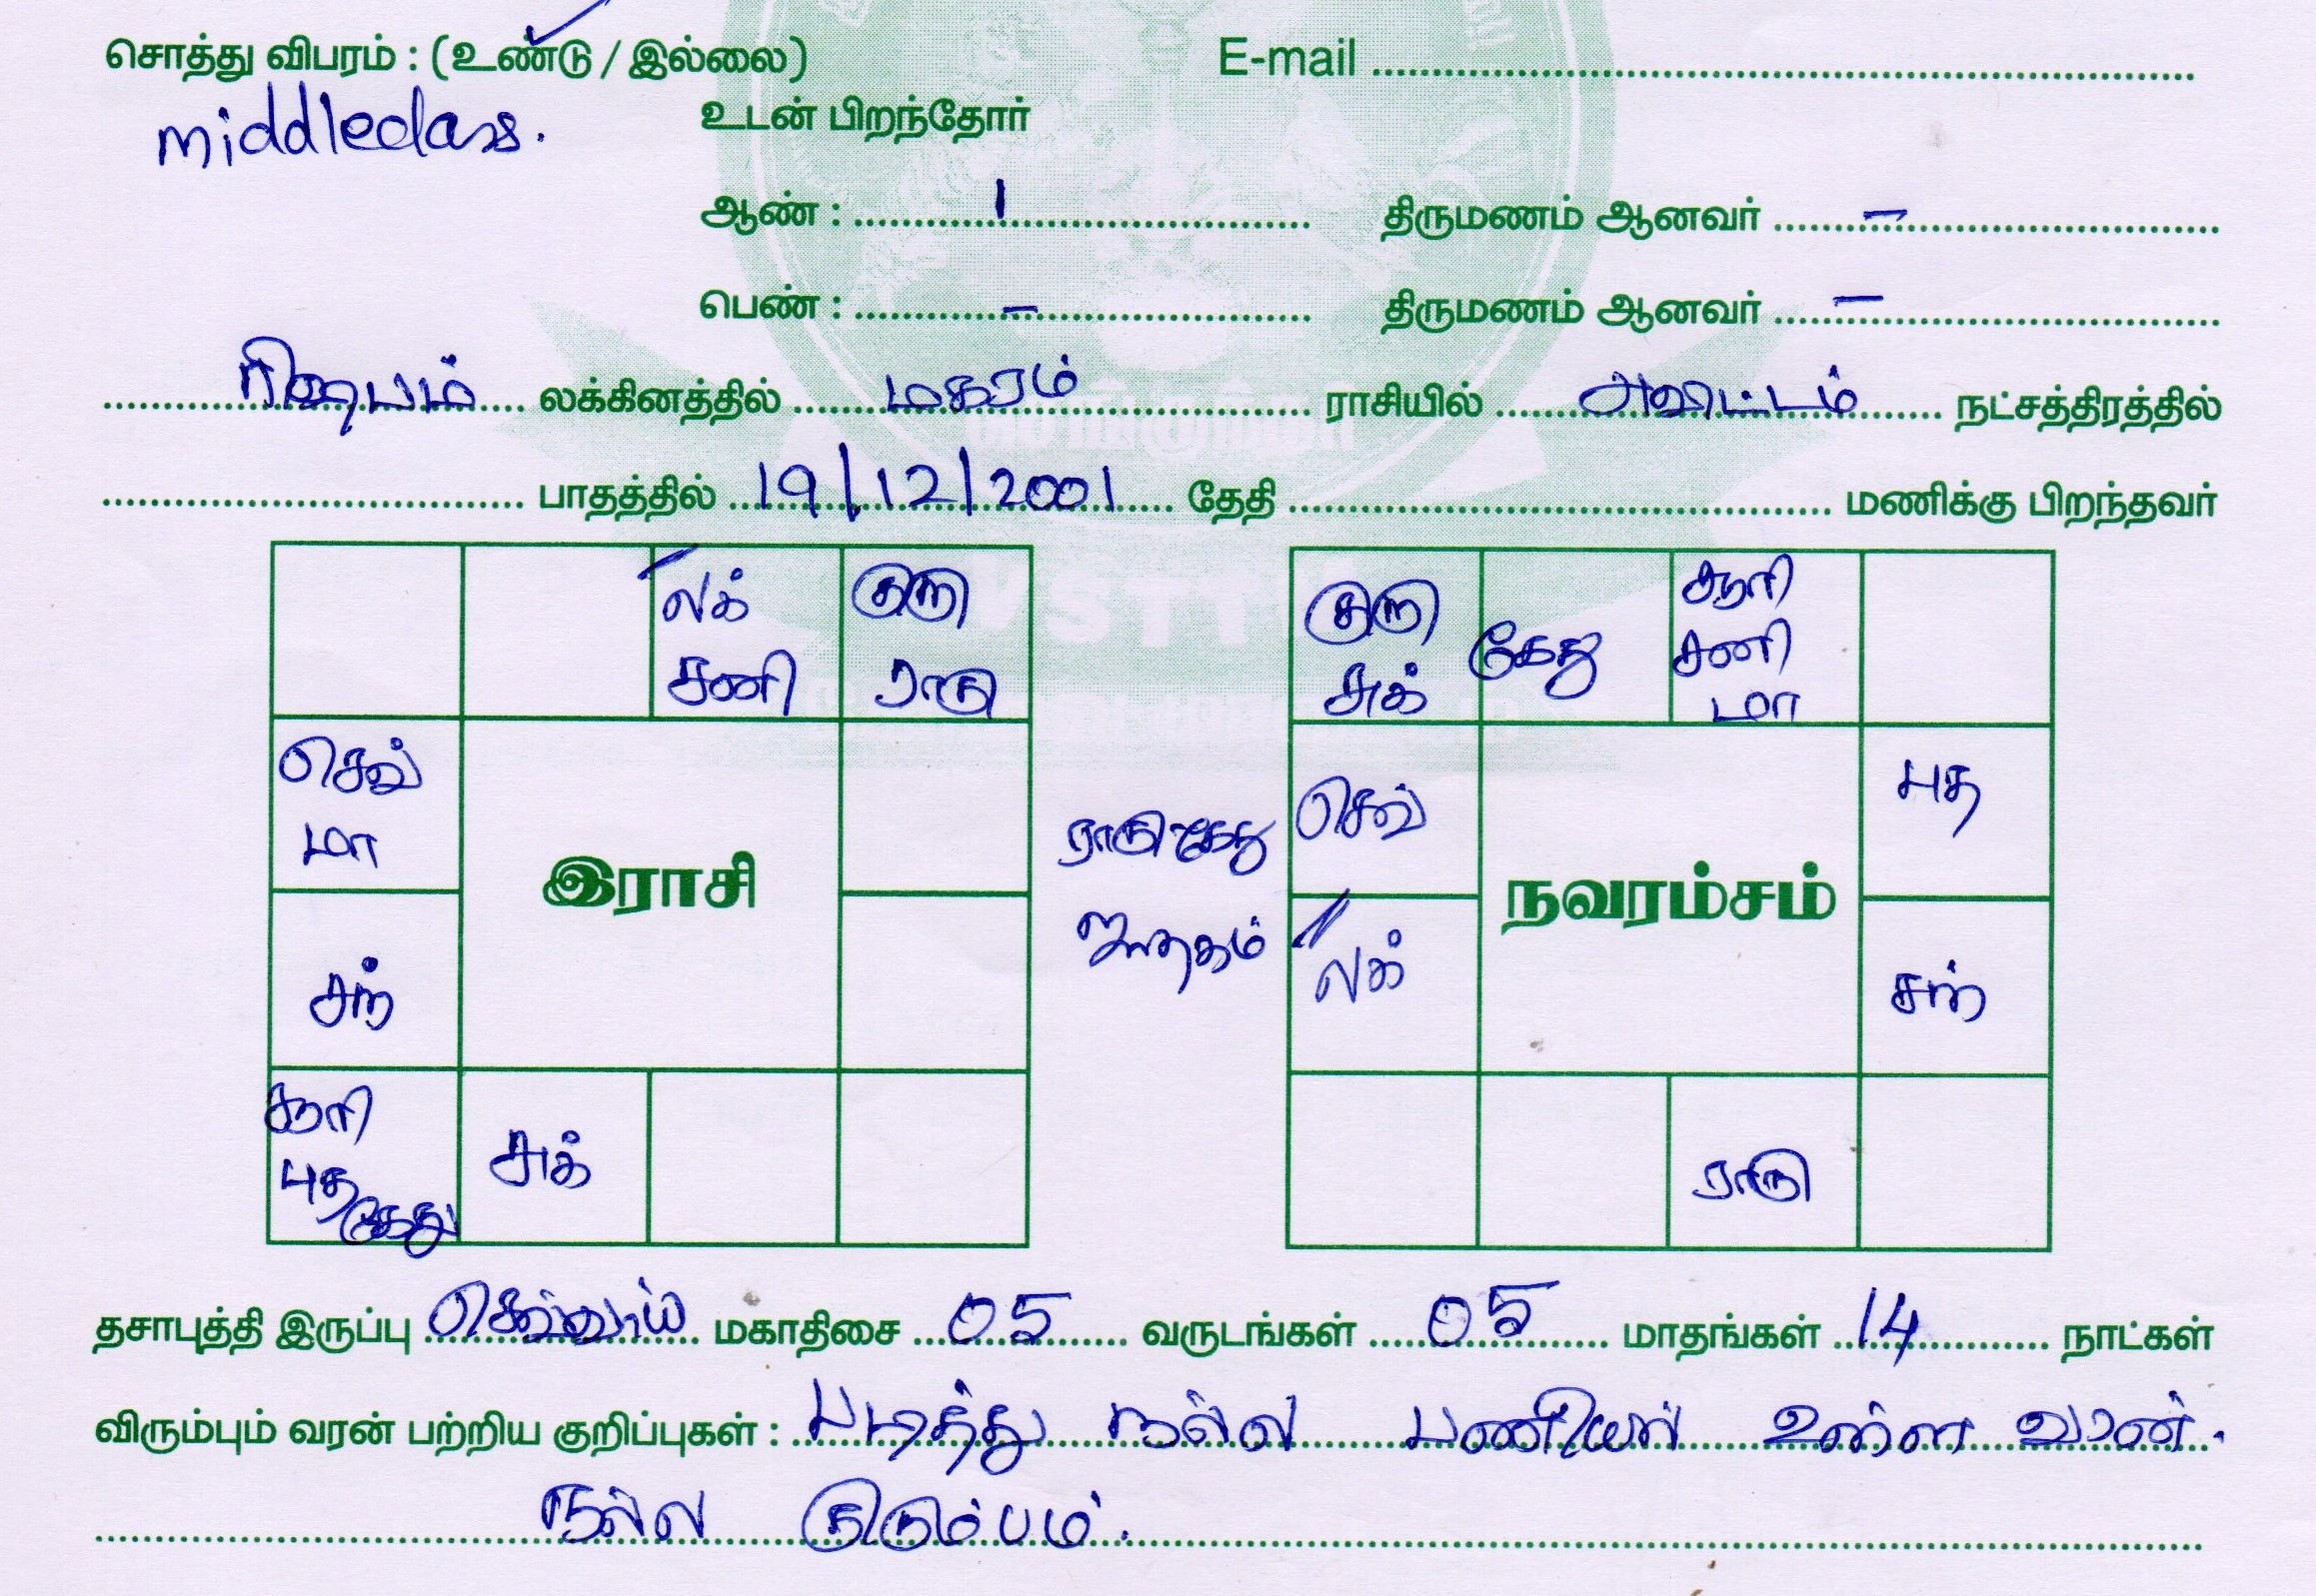 சொத்து விபரம் : (உண்டு / இல்லை) E-mail
middleclass. உடன் பிறந்தோர்
ஆண் : 1 திருமணம் ஆனவர் –
பெண் : – திருமணம் ஆனவர் –
ரிஷபம் லக்கினத்தில் மகரம் ராசியில் அவிட்டம் நட்சத்திரத்தில்
பாதத்தில் 19/12/2001 தேதி மணிக்கு பிறந்தவர்
லக் குரு
சனி ராகு
செவ்
மா
இராசி
சந்
சூரி
புத
கேது
சுக்
ராகு கேது
ஜாதகம்
குரு
சுக்
கேது
சூரி
சனி
மா
செவ்
புத
நவரம்சம்
லக்
சந்
ராகு
தசாபுத்தி இருப்பு செவ்வாய் மகாதிசை 05 வருடங்கள் 05 மாதங்கள் 14 நாட்கள்
விரும்பும் வரன் பற்றிய குறிப்புகள் : படித்து நல்ல பணியில் உள்ள வரன்.
நல்ல குடும்பம்.